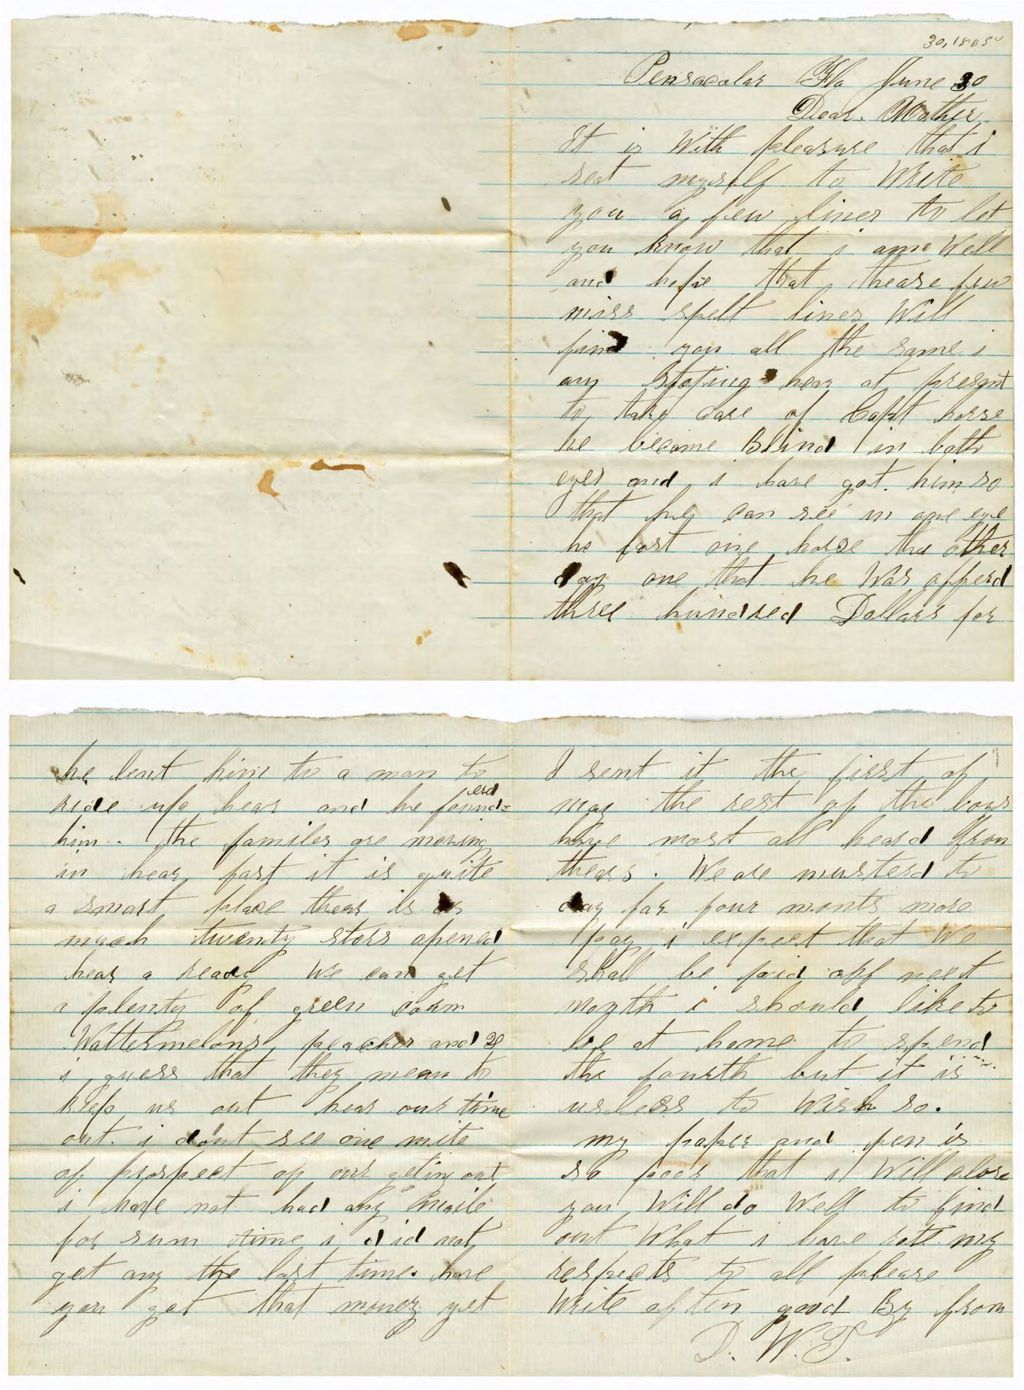 30, 1865
Pensacolar Fla June 30
Dear. Mother
It is With pleasure that i
seat myself to Write
you a few lines to let
you know that i am Well
and hope that theare few
miss spelt lines Will
find you all the same i
am stoping hear at present
to take care of Capt horse
he become Blind in both
eyes and i have got him so
that he can see in one eye
he lost one horse the other
day one that he Was offerd
three hundred Dollars for
he leant him to a man to
ride up hear and he founderd
him. the familes are moving
in hear fast it is quite
a smart place thear is as
much twenty stors opened
hear a ready We can get
a plenty of green corn
Wattermelons, peaches and
i guess that they mean to
keep us out hear our time
out. i dont see one mite
of prospect of our geting out
i have not had any maile
for sum time i did not
get any the last time. have
you got that money yet
I sent it the first of
may the rest of the boys
have most all heard from
thears. We are musterd to
day for four monts more
pay i expect that We
shall be paid off next
month i should like to
be at home to spend
the fourth but it is
useless to Wish so.
my paper and pen is
so poor that i Will close
you Will do Well to find
out What i have rote my
respects to all please
Write often good By from
D. W. T.